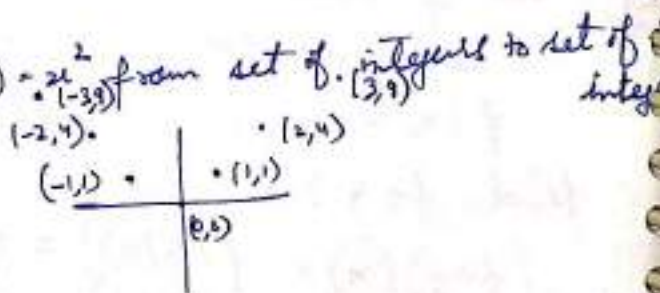 ) = x² from set of integers to set of
integ
(-3,9) (3,9)
(-2,4) (2,4)
(-1,1) (1,1)
(0,0)